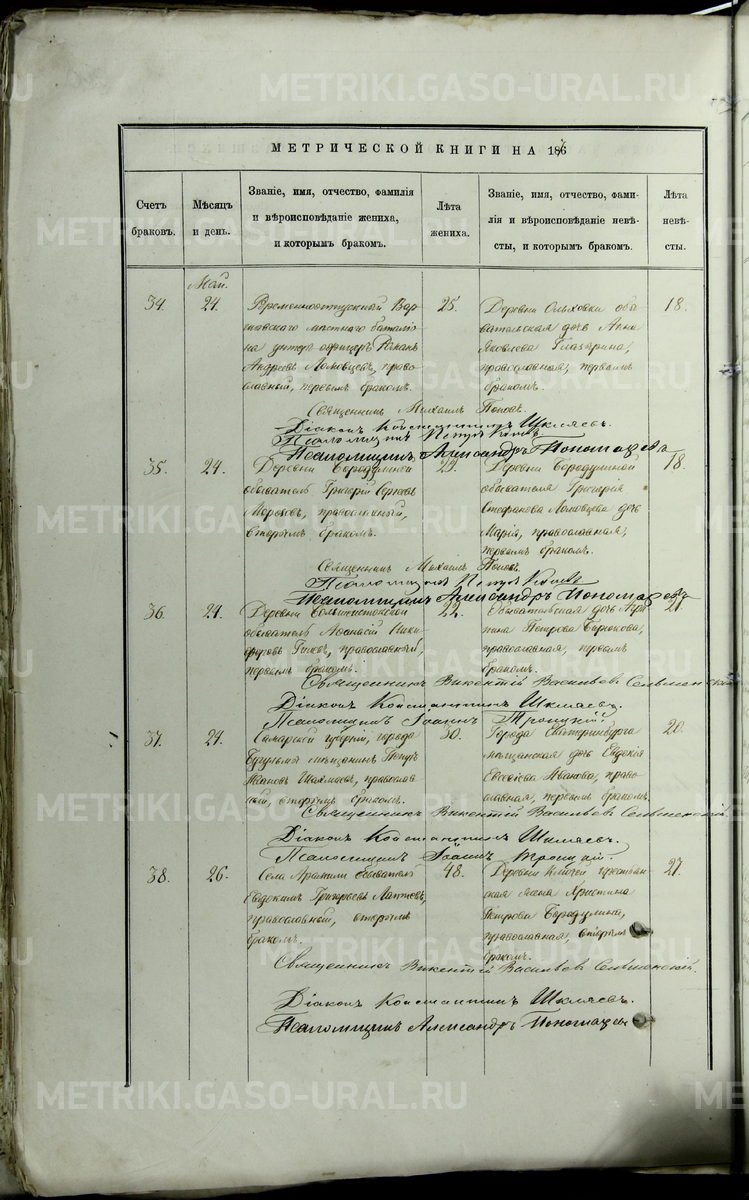 МЕТРИЧЕСКОЙ КНИГИ НА 186
Счетъ браковъ.
Мѣсяцъ и день.
Званіе, имя, отчество, фамилія
и вѣроисповѣданіе жениха,
и которымъ бракомъ.
Лѣта жениха.
Званіе, имя, отчество, фами-
лія и вѣроисповѣданіе невѣ-
сты, и которымъ бракомъ.
Лѣта невѣ-
сты.
Май.
34. 24.
Временноотпускный Вар-
шавскаго мѣстнаго баталіо-
на унтеръ офицеръ
Андреевъ Ломовцевъ, право-
славный, первымъ бракомъ.
25.
Деревни Ольховки обы-
вательская дочь Анна
Яковлева Глазырина,
православная, первымъ
бракомъ.
18.
Священникъ Михаилъ Поповъ.
Діаконъ Константинъ Шкляевъ.
Псаломщикъ Петръ
Псаломщикъ Александръ Пономаревъ
35. 24.
Деревни Бородулиной
обыватель Григорій Сергѣевъ
православный,
вторымъ бракомъ.
Деревни Бородулиной
обывателя Григорія
Стефанова Ломовцева дочь
Марія, православная,
первымъ бракомъ.
18.
Священникъ Михаилъ Поповъ.
Псаломщикъ Петръ
Псаломщикъ Александръ Пономаревъ
36. 24.
Деревни
обыватель Аѳанасій Ники-
форовъ православный,
первымъ бракомъ.
22.
Обывательская дочь Агри-
пина Петрова Бирюкова,
православная, первымъ
бракомъ.
21.
Священникъ Викентій Васильевъ Сельменскій
Діаконъ Константинъ Шкляевъ.
Псаломщикъ Іоаннъ Троицкій.
37. 24.
Самарской губерніи, города
Бугульмы мѣщанинъ Петръ
Ивановъ Шахмаевъ, православ-
ный, вторымъ бракомъ.
30.
Города Екатеринбурга
мѣщанская дочь Евдокія
Иванова, право-
славная, первымъ бракомъ.
20.
Священникъ Викентій Васильевъ Сельменскій.
Діаконъ Константинъ Шкляевъ.
Псаломщикъ Іоаннъ Троицкій.
38. 26.
Села Арамили обыватель
Евдокимъ Григорьевъ Лаптевъ,
православный, вторымъ
бракомъ.
48.
Деревни Ключей крестьян-
ская жена Христина
Петрова Бородулина,
православная, вторымъ
бракомъ.
27.
Священникъ Викентій Васильевъ Сельменскій.
Діаконъ Константинъ Шкляевъ.
Псаломщикъ Александръ Пономаревъ
METRIKI.GASO-URAL.RU